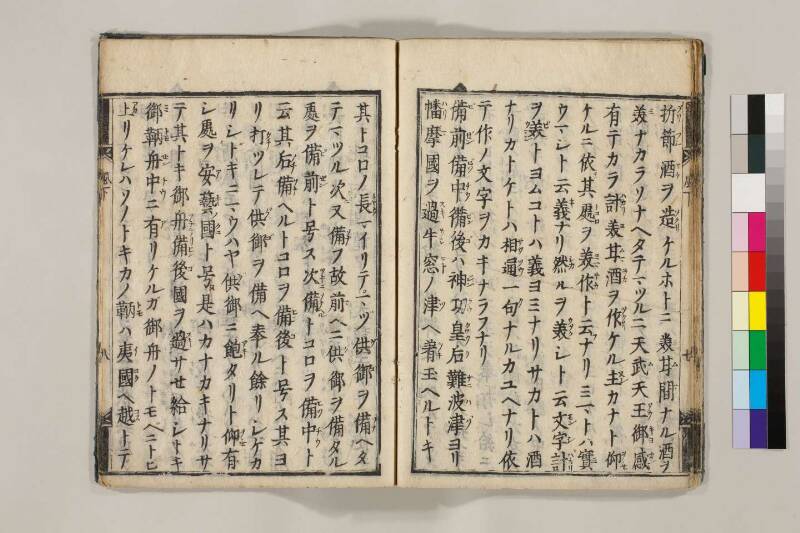 折節酒ヲ造ケルホトニ美耳間ナル酒ヲ
美ナカラソナヘタテマツルニ天武天王御感
有テカラ計美耳酒ヲ作ケル主カナト仰
ケルニ依其処ヲ美作ト云ナリミマトハ實
ウマシト云義ナリ然ルヲ美シト云文字計
ヲ美トヨムコトハ義ヨミナリサカトハ酒
ナリカトケトハ相通一句ナルカユヘナリ依
テ作ノ文字ヲカキナラフナリ
備前備中備後ハ神功皇后難波津ヨリ
幡摩國ヲ過牛窓ノ津ヘ着玉ヘルトキ
其トコロノ長マイリテマツ供御ヲ備ヘタ
テマツル次又備フ故前ヘニ供御ヲ備タル
処ヲ備前ト号ス次備ルトコロヲ備中ト
云其后備ヘルトコロヲ備後ト号ス其ヨ
リ打ツレテ供御ヲ備ヘ奉ル餘リシゲカ
リシトキニマウハヤ供御ニ飽タリト仰有
シ処ヲ安藝國ト号是ハカナカキナリサ
テ其トキ御舟備後國ヲ過サセ給シトキ
御鞆舟中ニ有リケルガ御舟ノトモヘニトヒ
上リケレハソノトキカノ鞆ハ夷國ヘ越トテ